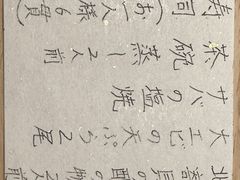 寿司(お一人様6貫)
茶碗蒸し2人前
サバの塩焼
大エビの天ぷら2尾
北寄貝の